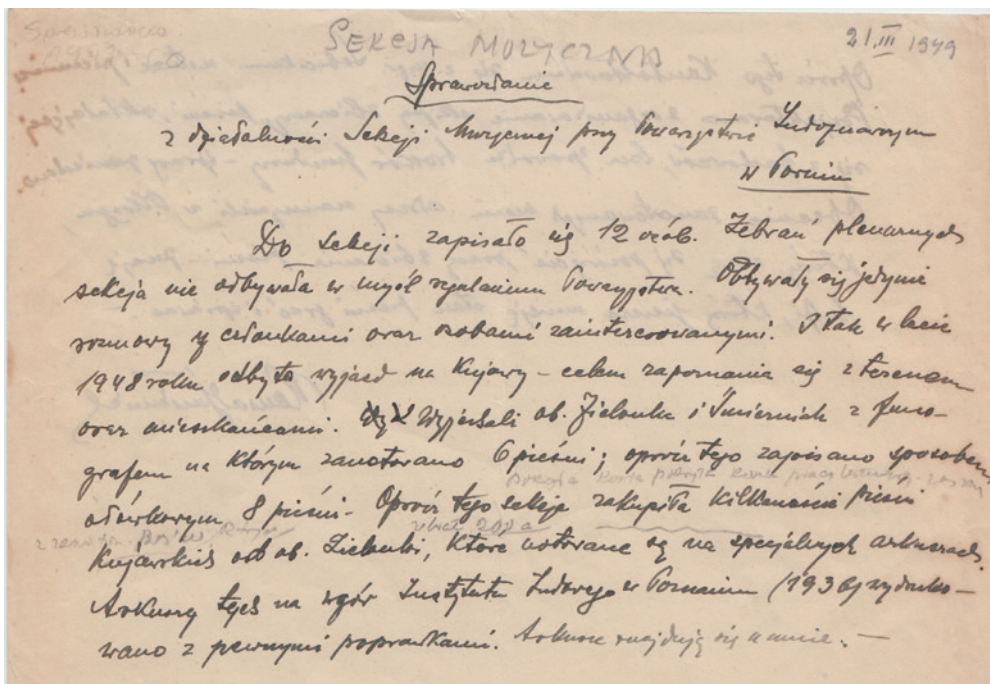 Sprawozdanie
SEKCJA MUZYCZNA
21.III 1949
Sprawozdanie
z działalności Sekcji Muzycznej przy Towarzystwie Ludoznawczym
w Toruniu
Do sekcji zapisało się 12 osób. Zebrań plenarnych
sekcja nie odbywała w myśl regulaminu Towarzystwa. Odbywały się jedynie
rozmowy z członkami oraz osobami zainteresowanymi. I tak w lecie
1948 roku odbyto wyjazd na Kujawy – celem zapoznania się z terenem
oraz mieszkańcami. Wyjeżdżali ob. Zielonka i Śmierniak z fono-
grafem na którym zanotowano 6 pieśni; oprócz tego zapisano sposobem
ołówkowym 8 pieśni. Oprócz tego sekcja zakupiła kilkanaście pieśni
Kujawskich od ob. Zielonki, które notowane są na specjalnych arkuszach.
Arkusze tych na wzór Instytutu Ludowego w Poznaniu (1936) wydruko-
wano z pewnymi poprawkami. Arkusze znajdują się u mnie. —